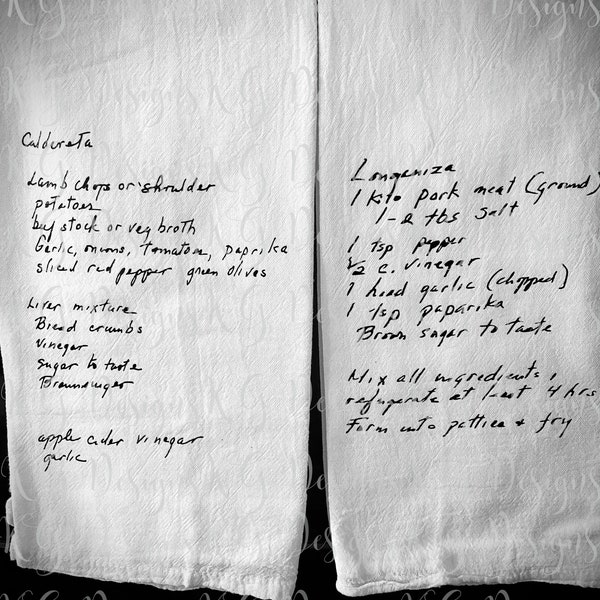 Caldereta
Lamb chops or shrulder
potatoes
beef stock or veg broth
Garlic, onions, tomatoes, paprika
sliced red pepper green olives
Liver mixture
Bread crumbs
Vinegar
Sugar to taste
Braunsweger
apple cider vinegar
garlic
Longaniza
1 kilo pork meat (ground)
1-2 tbs salt
1 tsp pepper
1/2 c. vinegar
1 head garlic (chopped)
1 tsp paparika
Brown sugar to taste
Mix all ingredients,
refrigerate at least 4 hrs
Form into patties & fry
KG Designs